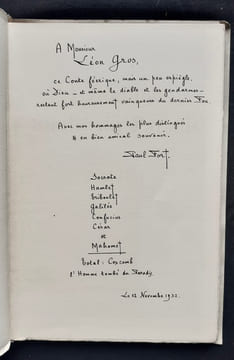 A Monsieur
Léon Gros,
ce Conte féerique, mais un peu espiègle,
où Dieu – et même le diable et les gendarmes –
restent fort heureusement vainqueurs du dernier Fou.
Avec mes hommages les plus distingués
et en bien amical souvenir.
Paul Fort
Socrate
Hamlet
Triboulet
Galilée
Confucius
César
et
Mahomet
Total : Coxcomb
l'Homme tombé du Paradis.
Le 12 Novembre 1932.